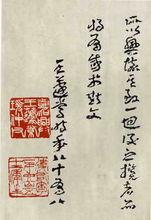 所以興懷其致一也後之攬者亦
將有感於斯文
王蘧常時年八十有八